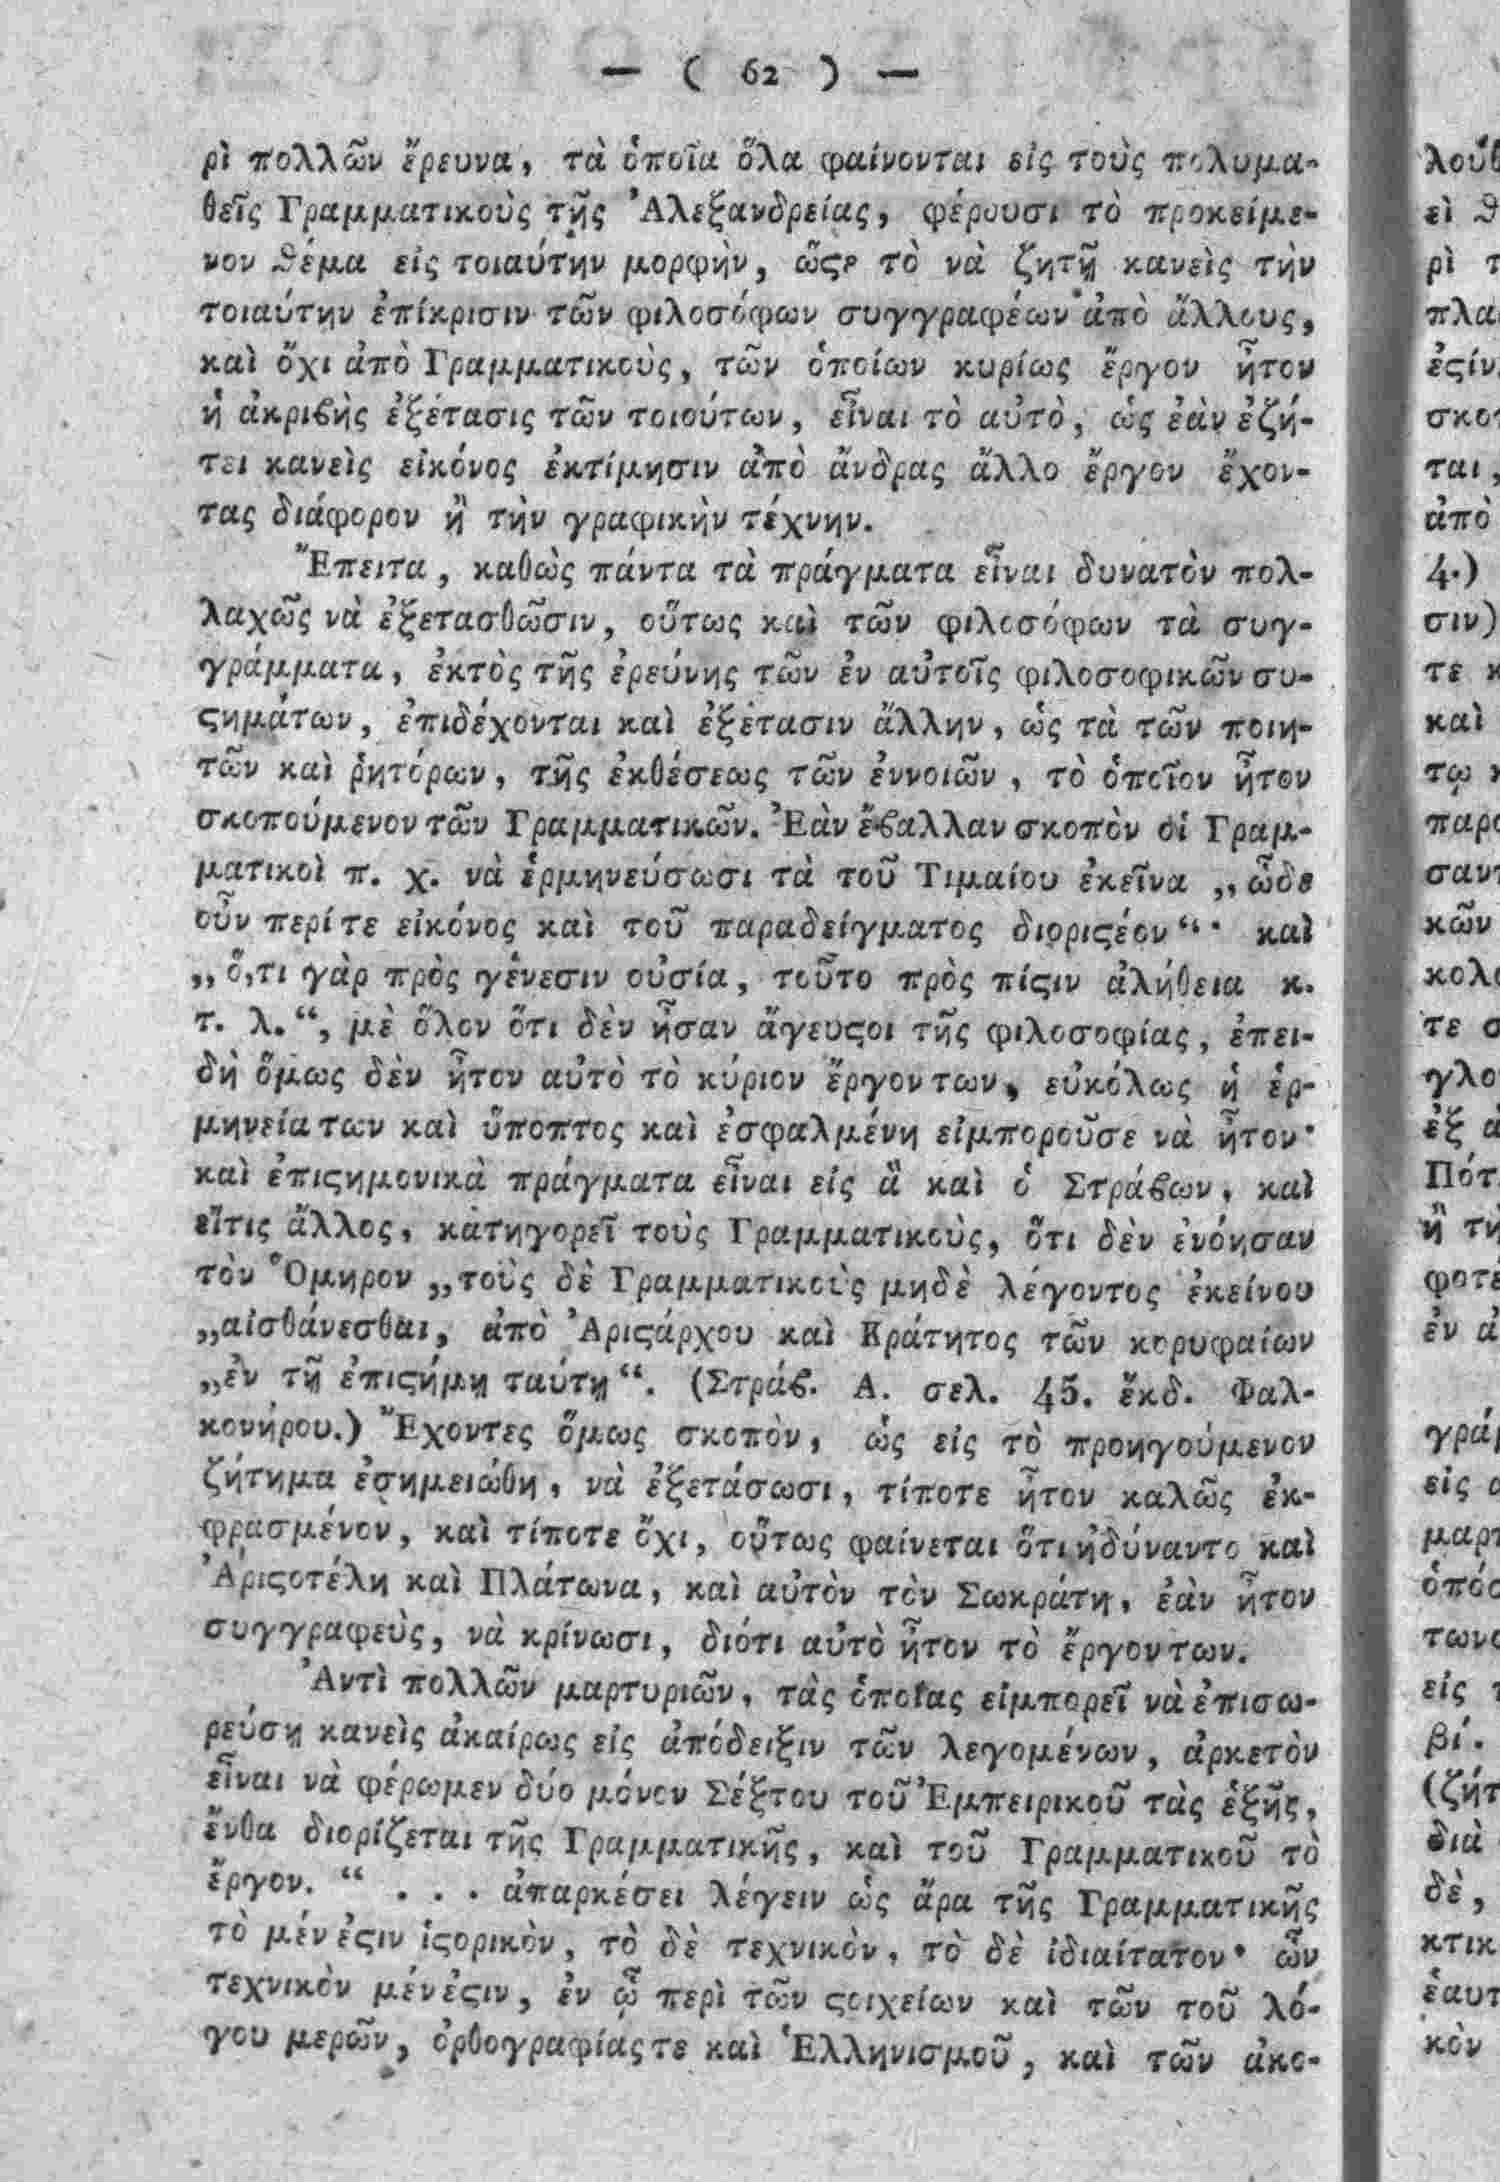 — ( 62 ) —
ρὶ πολλῶν ἔρευνα, τὰ ὁποῖα ὅλα φαίνονται εἰς τοὺς πολυμα-
θεῖς Γραμματικοὺς τῆς Ἀλεξανδρείας, φέρουσι τὸ προκείμε-
νον ϑέμα εἰς τοιαύτην μορφὴν, ὥςε τὸ νὰ ζητῇ κανεὶς τὴν
τοιαύτην ἐπίκρισιν τῶν φιλοσόφων συγγραφέων ἀπὸ ἄλλους,
καὶ ὄχι ἀπὸ Γραμματικοὺς, τῶν ὁποίων κυρίως ἔργον ἦτον
ἡ ἀκριϐὴς ἐξέτασις τῶν τοιούτων, εἶναι τὸ αὐτὸ, ὡς ἐὰν ἐζή-
τει κανεὶς εἰκόνος ἐκτίμησιν ἀπὸ ἄνδρας ἄλλο ἔργον ἔχον-
τας διάφορον ἢ τὴν γραφικὴν τέχνην.
Ἔπειτα, καθὼς πάντα τὰ πράγματα εἶναι δυνατὸν πολ-
λαχῶς νὰ ἐξετασθῶσιν, οὕτως καὶ τῶν φιλοσόφων τὰ συγ-
γράμματα, ἐκτὸς τῆς ἐρεύνης τῶν ἐν αὐτοῖς φιλοσοφικῶν συ-
ςημάτων, ἐπιδέχονται καὶ ἐξέτασιν ἄλλην, ὡς τὰ τῶν ποιη-
τῶν καὶ ῥητόρων, τῆς ἐκθέσεως τῶν ἐννοιῶν, τὸ ὁποῖον ἦτον
σκοπούμενον τῶν Γραμματικῶν. Ἐὰν ἔϐαλλαν σκοπὸν οἱ Γραμ-
ματικοὶ π. χ. νὰ ἑρμηνεύσωσι τὰ τοῦ Τιμαίου ἐκεῖνα „ὧδε
οὖν περί τε εἰκόνος καὶ τοῦ παραδείγματος διοριςέον“· καὶ
„ὅ,τι γὰρ πρὸς γένεσιν οὐσία, τοῦτο πρὸς πίςιν ἀλήθεια κ.
τ. λ.“, μὲ ὅλον ὅτι δὲν ἦσαν ἄγευςοι τῆς φιλοσοφίας, ἐπει-
δὴ ὅμως δὲν ἦτον αὐτὸ τὸ κύριον ἔργον των, εὐκόλως ἡ ἑρ-
μηνεία των καὶ ὕποπτος καὶ ἐσφαλμένη εἰμποροῦσε νὰ ἦτον·
καὶ ἐπιςημονικὰ πράγματα εἶναι εἰς ἃ καὶ ὁ Στράϐων, καὶ
εἴτις ἄλλος, κατηγορεῖ τοὺς Γραμματικοὺς, ὅτι δὲν ἐνόησαν
τὸν Ὅμηρον „τοὺς δὲ Γραμματικοὺς μηδὲ λέγοντος ἐκείνου
„αἰσθάνεσθαι, ἀπὸ Ἀριςάρχου καὶ Κράτητος τῶν κορυφαίων
„ἐν τῇ ἐπιςήμῃ ταύτῃ“. (Στράϐ. Α. σελ. 45. ἔκδ. Φαλ-
κονήρου.) Ἔχοντες ὅμως σκοπὸν, ὡς εἰς τὸ προηγούμενον
ζήτημα ἐσημειώθη, νὰ ἐξετάσωσι, τίποτε ἦτον καλῶς ἐκ-
φρασμένον, καὶ τίποτε ὄχι, οὕτως φαίνεται ὅτι ἠδύναντο καὶ
Ἀριςοτέλη καὶ Πλάτωνα, καὶ αὐτὸν τὸν Σωκράτη, ἐὰν ἦτον
συγγραφεὺς, νὰ κρίνωσι, διότι αὐτὸ ἦτον τὸ ἔργον των.
Ἀντὶ πολλῶν μαρτυριῶν, τὰς ὁποίας εἰμπορεῖ νὰ ἐπισω-
ρεύσῃ κανεὶς ἀκαίρως εἰς ἀπόδειξιν τῶν λεγομένων, ἀρκετὸν
εἶναι νὰ φέρωμεν δύο μόνον Σέξτου τοῦ Ἐμπειρικοῦ τὰς ἑξῆς,
ἔνθα διορίζεται τῆς Γραμματικῆς, καὶ τοῦ Γραμματικοῦ τὸ
ἔργον. “ . . . ἀπαρκέσει λέγειν ὡς ἄρα τῆς Γραμματικῆς
τὸ μέν ἐςιν ἱςορικὸν, τὸ δὲ τεχνικὸν, τὸ δὲ ἰδιαίτατον· ὧν
τεχνικὸν μέν ἐςιν, ἐν ᾧ περὶ τῶν ςοιχείων καὶ τῶν τοῦ λό-
γου μερῶν, ὀρθογραφίας τε καὶ Ἑλληνισμοῦ, καὶ τῶν ἀκο-